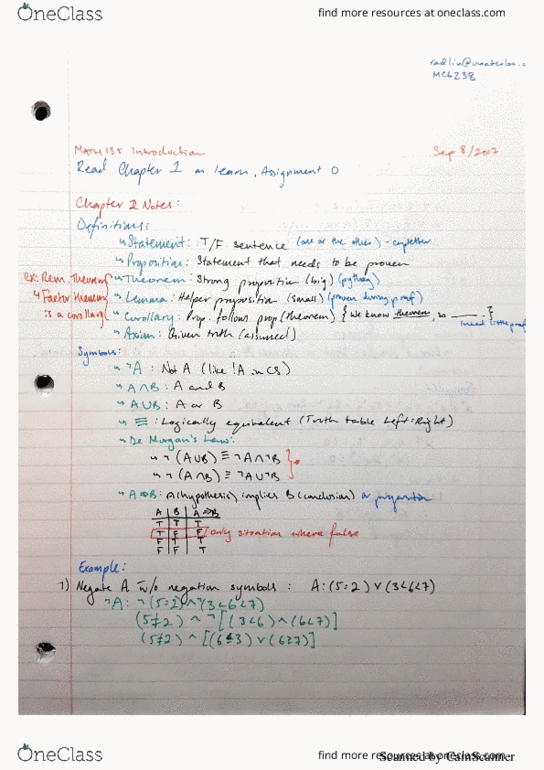 OneClass find more resources at oneclass.com
MC6238
MATH 135 Introduction Sep 8/2017
Read Chapter 1 on learn, Assignment 0
Chapter 2 Notes:
Definitions:
↳ Statement: T/F sentence (one or the other)
↳ Proposition: Statement that needs to be proven
ex: Rem. Theorem ↳ Theorem: Strong proposition (big) (pythag)
↳ Factor theorem ↳ Lemma: Helper proposition (small) (proven during proof)
is a corollary ↳ Corollary: Prop. follows prop (theorem) { we know theorem, so ___. }
(need little proof
↳ Axiom: Given truth (assumed)
Symbols:
↳ ¬A: Not A (like !A in CS)
↳ A∩B: A and B
↳ A∪B: A or B
↳ ≡: Logically equivalent (Truth table Left=Right)
↳ De Morgan's Law:
↳ ¬(A∪B) ≡ ¬A∩¬B
↳ ¬(A∩B) ≡ ¬A∪¬B
↳ A⇒B: A(hypothesis) implies B(conclusion) or proposition
A B A⇒B
T T T
T F F only situation where false
F T T
F F T
Example:
1) Negate A w/o negation symbols: A: (5=2) ∨ (3<6<7)
¬A: ¬(5=2) ∧ ¬(3<6<7)
(5≠2) ∧ ¬[(3<6) ∧ (6<7)]
(5≠2) ∧ [(6≤3) ∨ (6≥7)]
OneClass find more resources at oneclass.com
Scanned by CamScanner